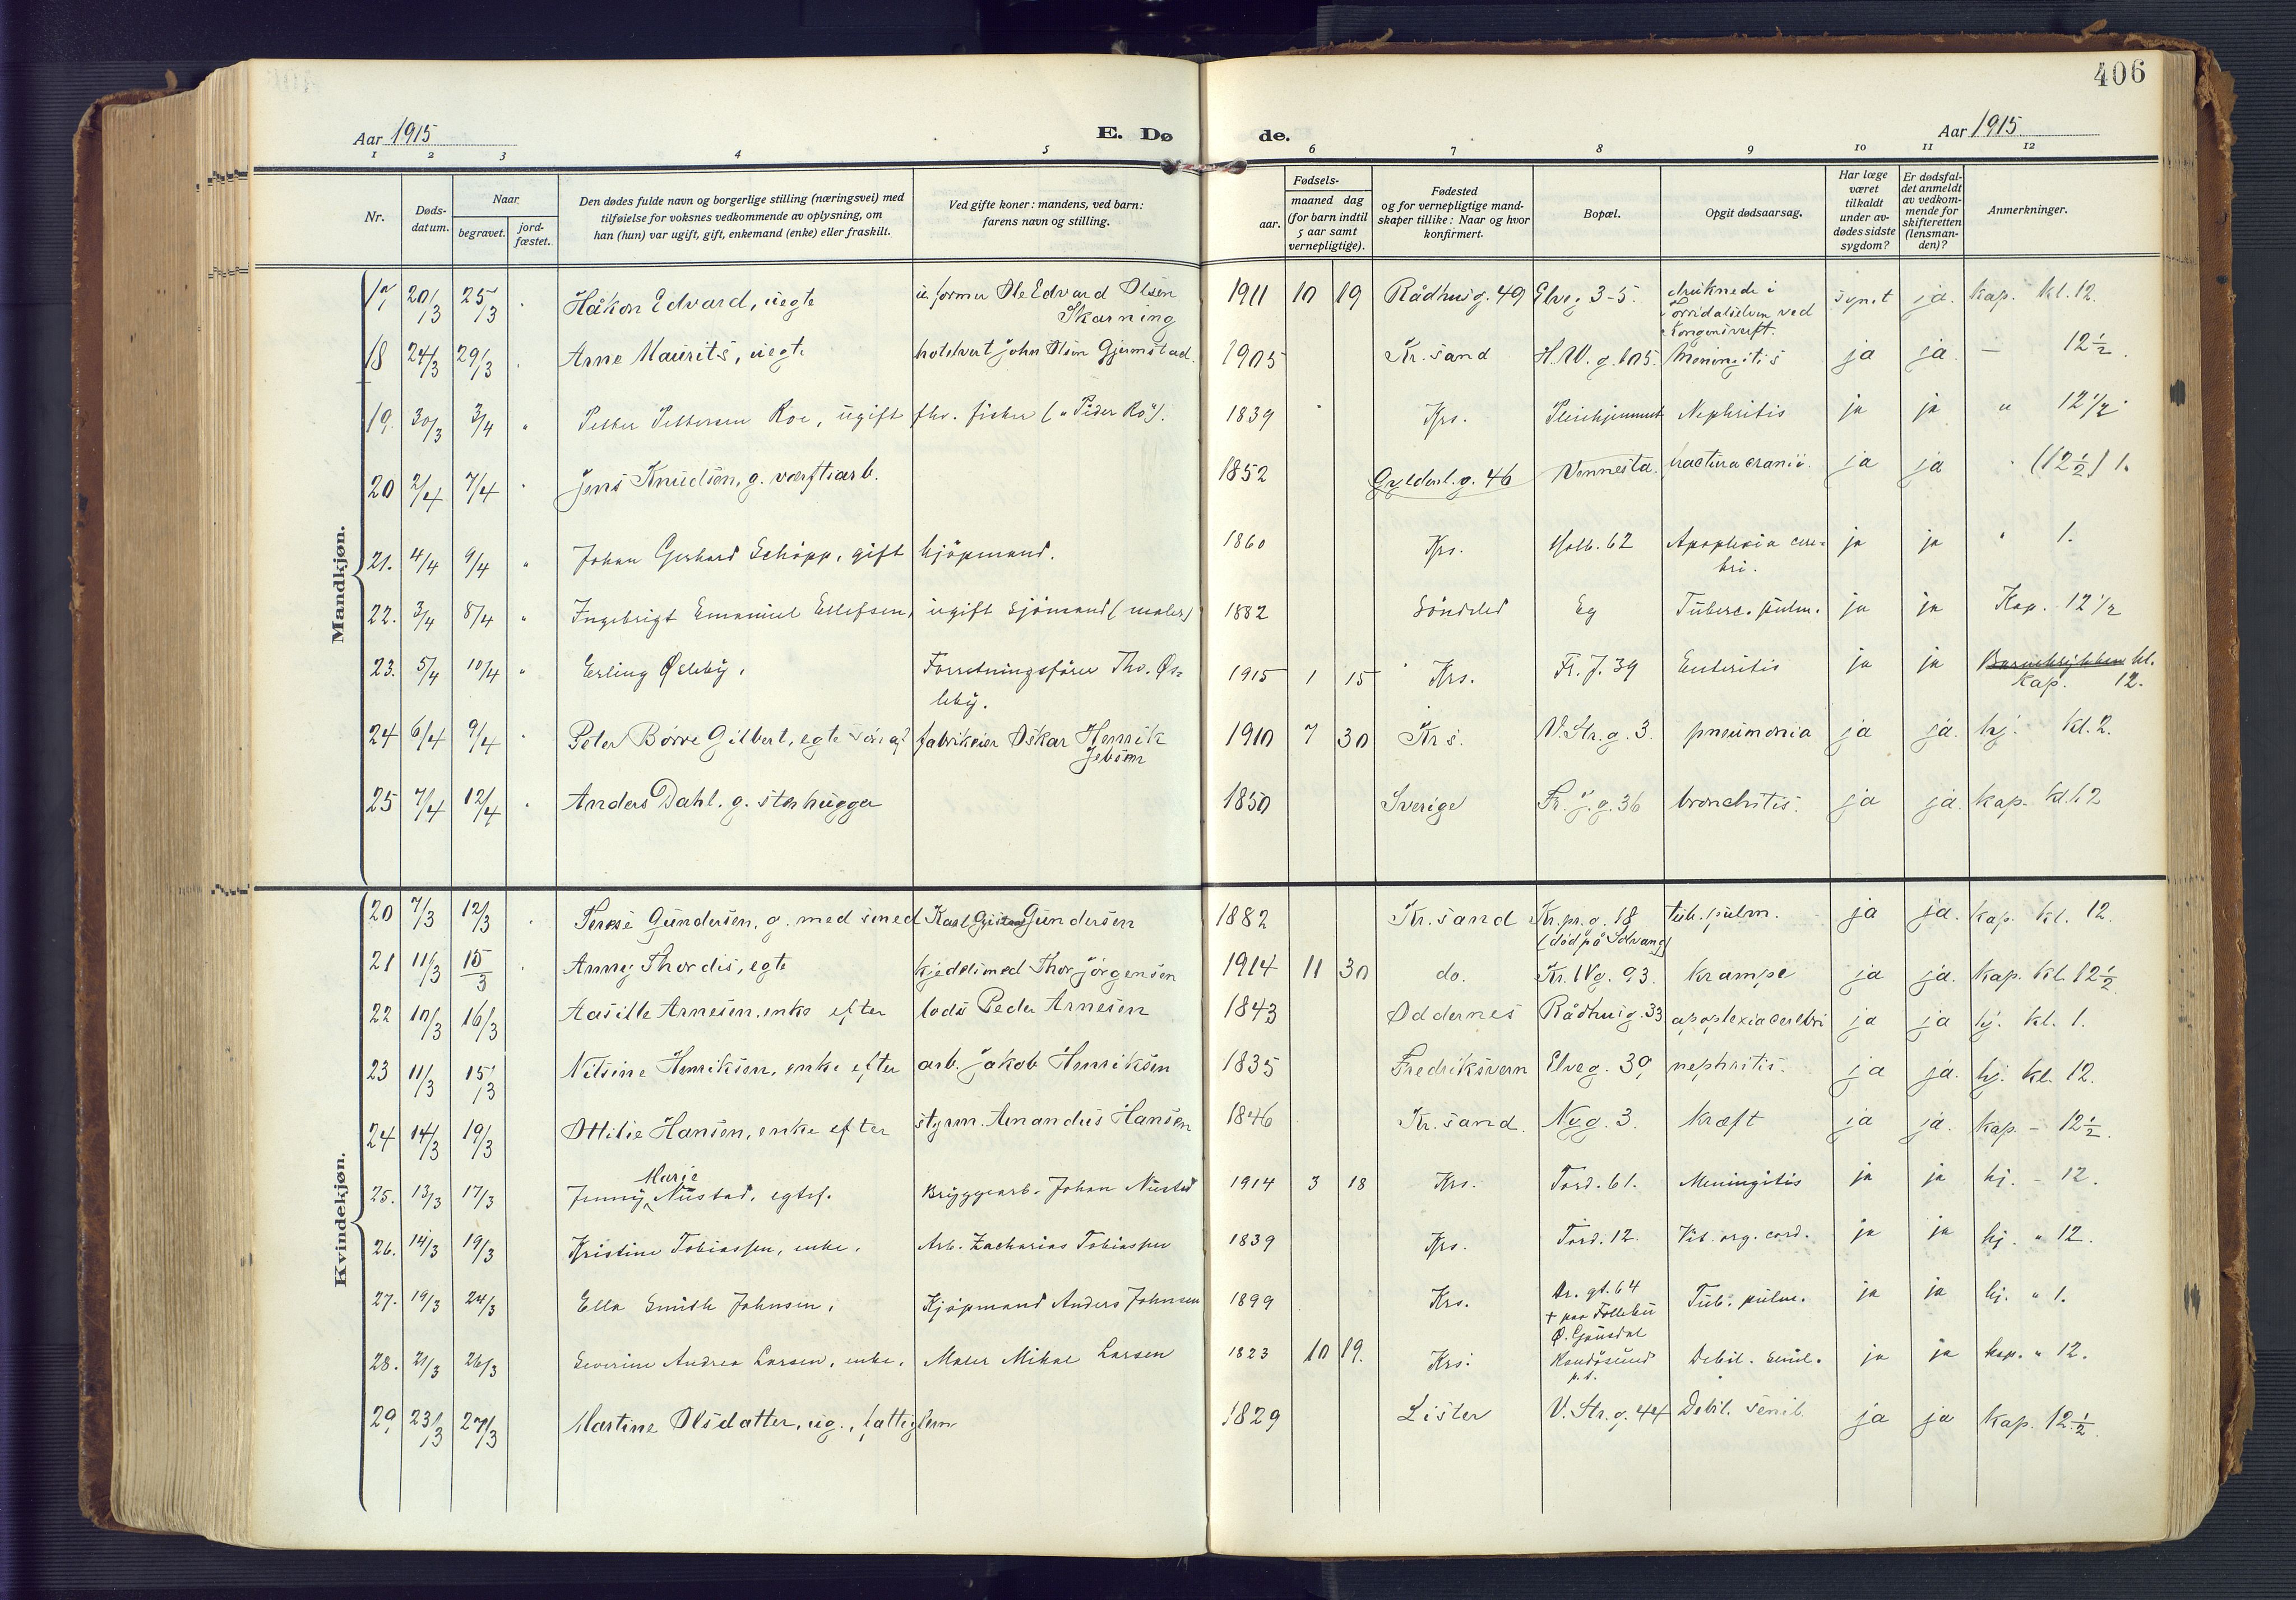 406
Aar 1915
E. Dø
de.
Aar 1915
1 2 3 4 5 6 7 8 9 10 11 12
Nr.
Døds-datum.
Naar
begravet.
jord-fæstet.
Den dødes fulde navn og borgerlige stilling (næringsvei) med
tilføielse for voksnes vedkommende av oplysning, om
han (hun) var ugift, gift, enkemand (enke) eller fraskilt.
Ved gifte koner: mandens, ved barn:
farens navn og stilling.
Fødsels-
aar.
maaned dag
(for barn indtil
5 aar samt
vernepligtige).
Fødested
og for vernepligtige mand-
skaper tillike: Naar og hvor
konfirmert.
Bopæl.
Opgit dødsaarsag.
Har læge
været
tilkaldt
under av-
dødes sidste
sygdom?
Er dødsfal-
det anmeldt
av vedkom-
mende for
skifteretten
(lensman-
den)?
Anmerkninger.
Mandkjøn.
17 20/3 25/3 Håkon Edvard, uegte former Ole Edvard Olsen Skarning 1911 10 19 Rådhusg. 49 Elveg. 3-5. druknede i Torridalselven ved Kongensverft. synet ja. kap. kl. 12.
18 24/3 29/3 Arne Maurits, uegte hotelvert John Olsen Gjermstad. 1905 Kr.sand H.W.g. 105. Meningitis ja ja. — 12½.
19. 30/3 3/4 " Petter Pettersen Roe, ugift fhv. fisker ("Peder Ro"). 1839 Krs. Pleiehjemmet Nephritis ja ja " 12½.
20 2/4 7/4 Jens Knudsen, g. verftsarb. 1852 Gyldenl.g. 46 Vennesla. fractura cranii. ja ja (12½) 1.
21. 4/4 9/4 " Johan Gerhard Schöpp, gift kjöpmand. 1860 Krs. Holb. 62 Apoplexia cere=bri. ja ja " 1.
22. 3/4 8/4 " Ingebrigt Emanuel Ellefsen, ugift sjömand (maler) 1882 Söndeled Eg Tuberc. pulm. ja ja Kap. 12½
23. 5/4 10/4 " Erling Øsleby, Forretningsfører Thv. Øs=leby. 1915 1 15 Krs. Fr. J. 39 Enteritis ja ja kl. kap. 12.
24 6/4 9/4 Peter Børre Gilbert, egte fabrikeier Oskar Henrik Jebsen 1910 7 30 Krs. V.Str.g. 3. pneumonia ja ja. hj. kl. 2.
25 7/4 12/4 Anders Dahl. g. stenhugger 1850 Sverige Fr. J. g. 36 bronchitis. ja ja. kap. kl. 12
Kvindekjøn.
20 7/3 12/3 Terese Gundersen, g. med smed Karl Gundersen 1882 Kr.sand Kr.pr.g. 18 (död på Solvang) tub. pulm. ja ja. kap. kl. 12.
21 11/3 15/3 Anny Thordis, egte kjedelsmed Thor Jörgensen 1914 11 30 do. Kr. IVg. 93. krampe ja ja. kap. kl. 12½
22 10/3 16/3 Aasille Arnesen, enke efter lods Peder Arnesen 1843 Oddernes Rådhusg. 33 apoplexia cerebri ja ja hj. kl. 1.
23 11/3 15/3 Nilsine Henriksen, enke efter arb. Jakob Henriksen 1835 Fredriksvern Elveg. 39 nephritis. ja ja. hj. kl. 12.
24 14/3 19/3 Ottilie Hansen, enke efter styrm. Amandus Hansen 1846 Kr.sand. Nyg. 3. kræft ja ja. kap. - 12½.
25. 13/3 17/3 Jenny Marie Nustad, egtef. Bryggearb. Johan Nustad 1914 3 18 Krs. Tord. 61. Meningitis ja ja hj. - 12.
26. 14/3 19/3 Kristine Tobiassen, enke, Arb. Zacharias Tobiassen 1839 Krs. Tord. 12. Vit. org. cord. ja ja hj. " 12.
27. 19/3 24/3 Ella Smith Johnsen, Kjöpmand Anders Johnsen 1899 Krs. Dr. gt. 64 + paa Follebu Ø. Gausdal Tub. pulm. ja ja hj. " 1.
28. 21/3 26/3 Severine Andrea Larsen, enke, Maler Mikal Larsen 1823 10 19. Krs. Randösund p.t. Debil. senil. ja ja kap. " 12.
29 23/3 27/3 Martine Olsdatter, ug., fattiglem 1829 Lister V. Str.g. 44 Debil. senil. ja ja kap. 12½.